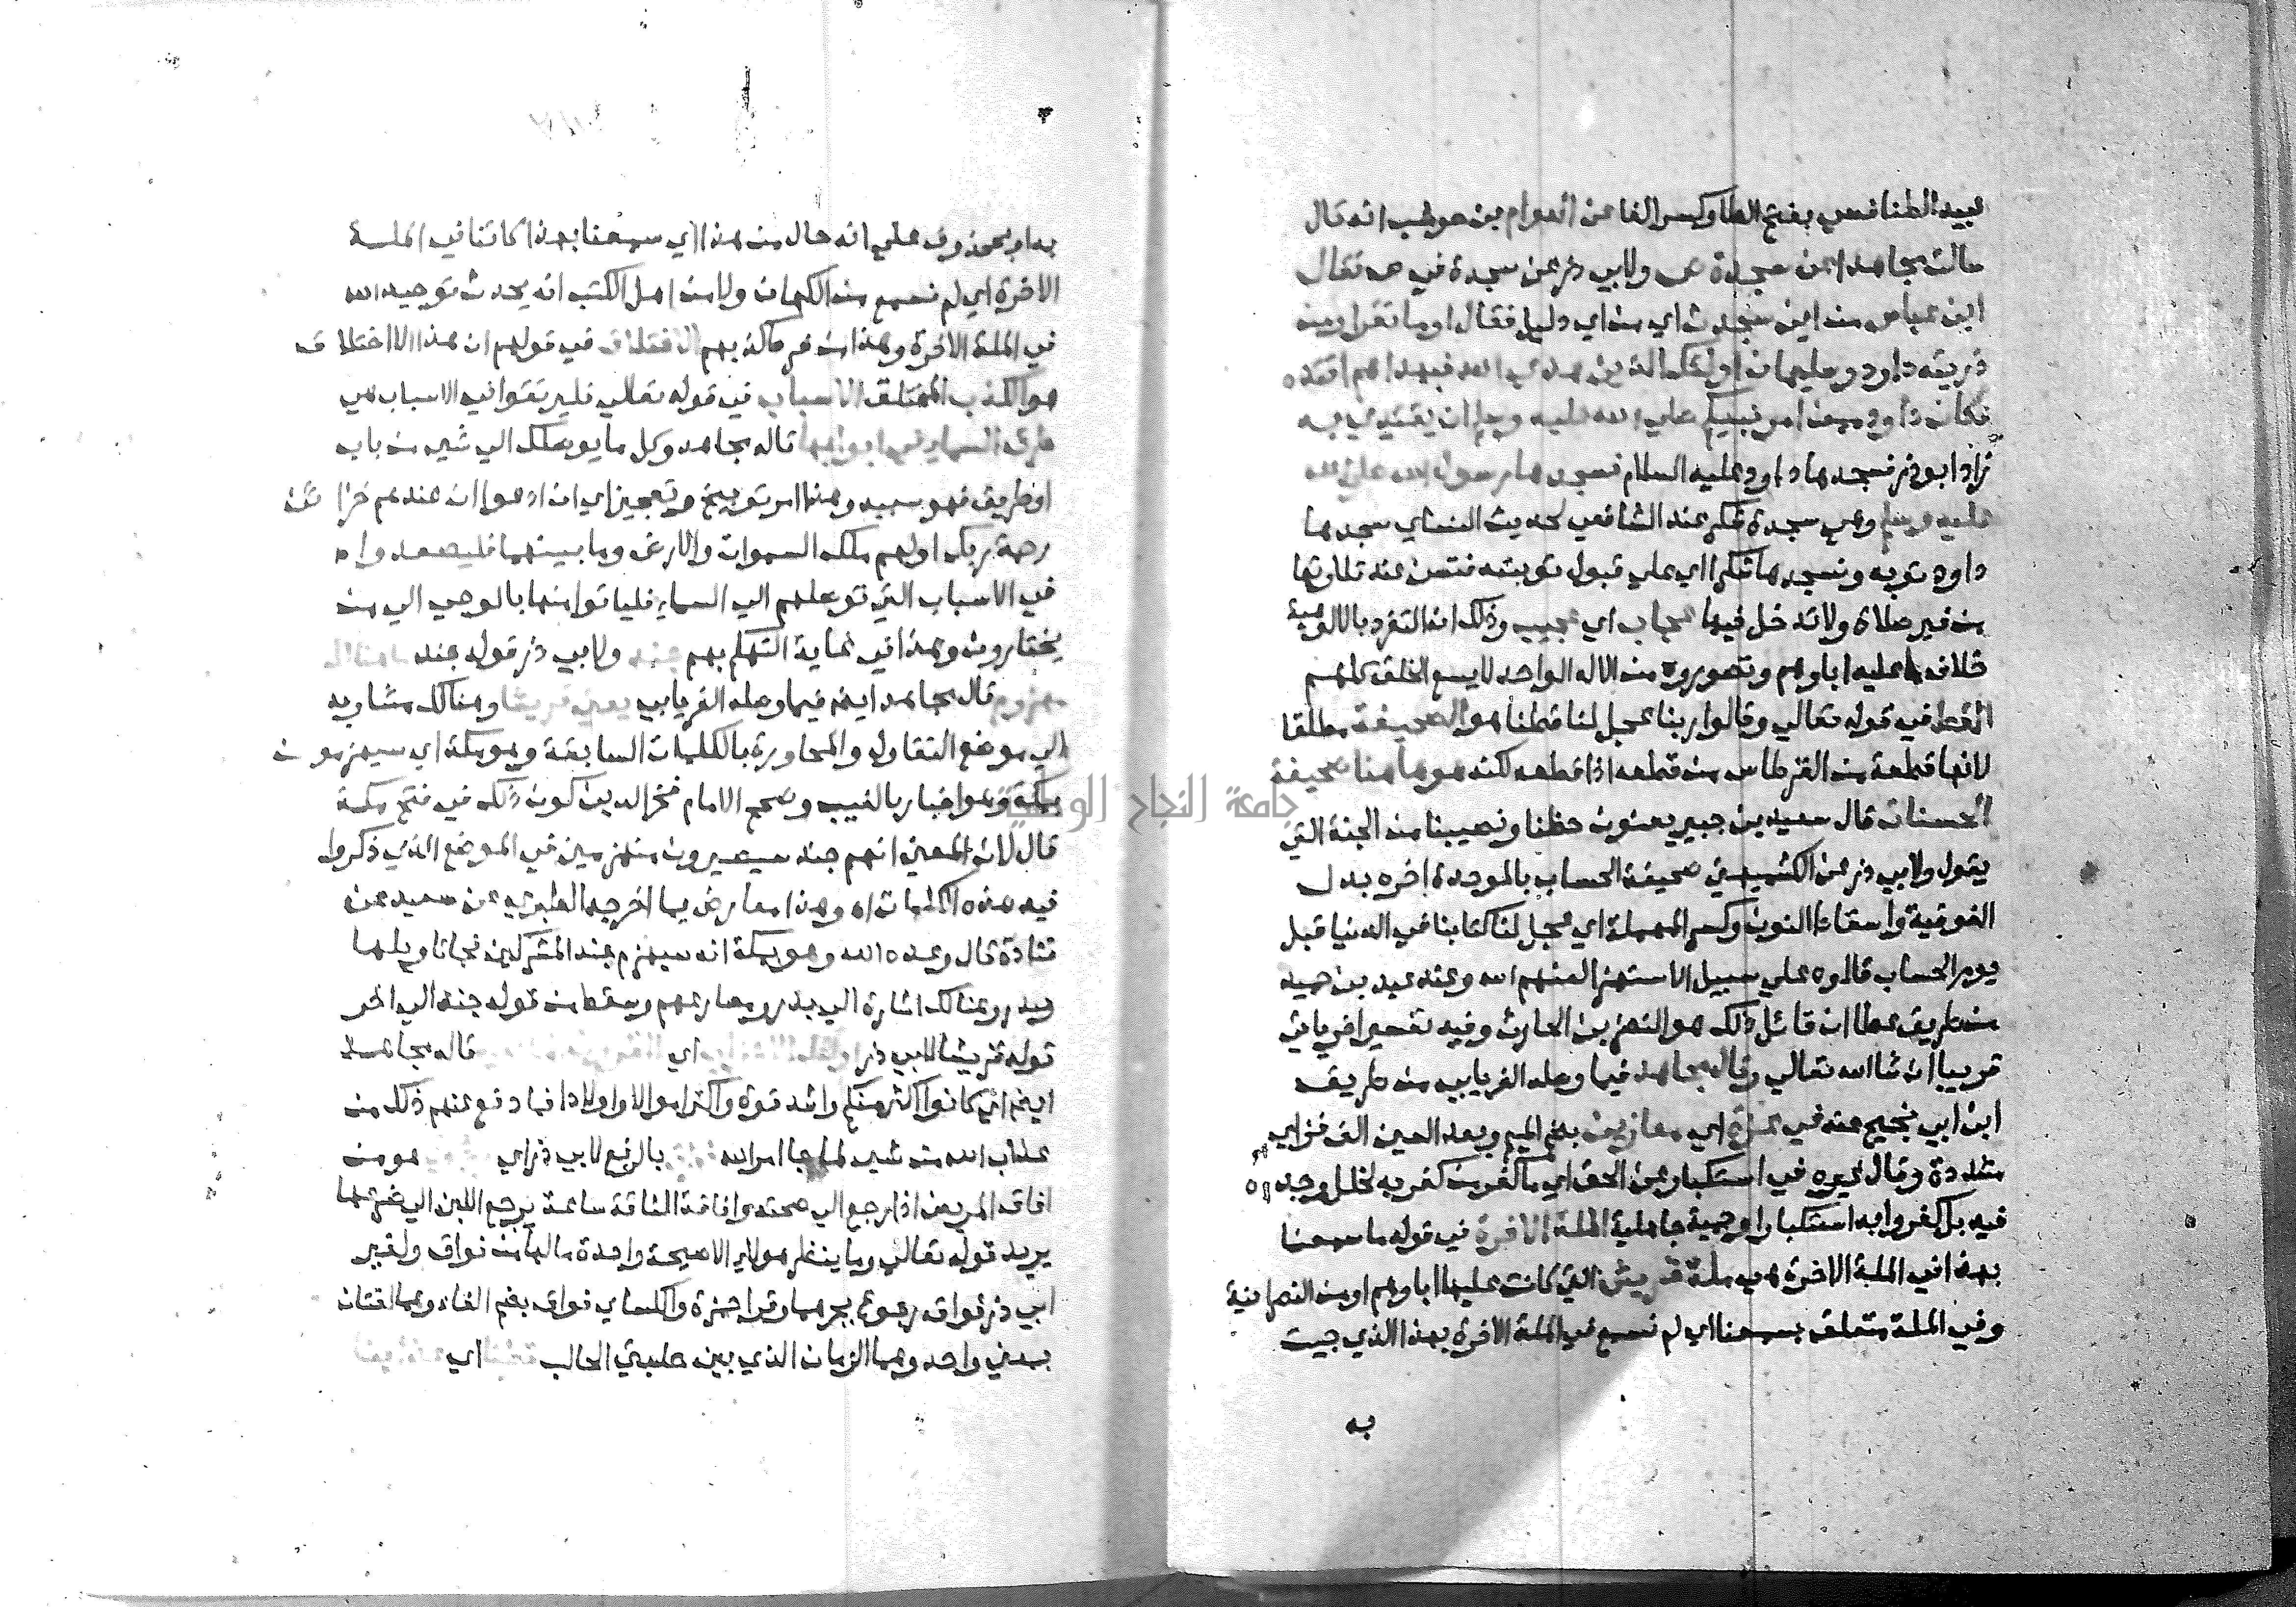 عبيد الطنافسي بفتح الطا وكسر الفا عن العوام بن حوشب انه قال
سالت مجاهدا عن سجدة ص ولابي ذر عن سجدة في ص فقال
ابن عباس من اين سجدت اي من اي دليل فقال اوما تقرا ومن
ذريته داود وسليمان اوليك الذين هدي الله فبهداهم اقتده
فكان داود ممن امر نبيكم صلي الله عليه وسلم ان يقتدي به
زاد ابو ذر فسجدها داود عليه السلام فسجدها رسول الله صلي الله
عليه وسلم وهي سجدة شكر عند الشافعي لحديث النساي سجدها
داود توبه ونسجدها شكرا اي علي قبول توبته فتسن عند تلاوتها
من غير صلاة ولا تدخل فيها عجاب اي عجيب وذلك ان التفرد بالالوهية
خلاف ما عليه اباوهم وتصوروه من الاله الواحد لا يسع الخلق كلهم
القط في قوله تعالي وقالوا ربنا عجل لنا قطنا هو الصحيفة مطلقا
لانها قطعة من القرطاس من قطعه اذا قطعه لكنه هو هاهنا صحيفة
الحسنات قال سعيد بن جبير يعنون حظنا ونصيبنا من الجنة التي
يقول ولابي ذر عن الكشميهني صحيفة الحساب بالموحدة اخره بدل
الفوقية واسقاط النون وكسر المهملة اي عجل لنا كتابنا في الدنيا قبل
يوم الحساب قالوه علي سبيل الاستهزا لعنهم الله وعند عبد بن حميد
من طريق عطا ان قائل ذلك هو النضر بن الحارث وفيه تفسير اخر ياتي
قريبا ان شا الله تعالي وقال مجاهد فيما وصله الفريابي من طريق
ابن ابي نجيح عنه في عزة اي معازين بضم الميم وبعد العين الف فزاي
مشددة وقال غيره في استكبار عن الحق اي ما كفر من كفر به لخلل وجده
فيه بل كفروا به استكبارا وحمية جاهلية الملة الاخرة في قوله ما سمعنا
بهذا في الملة الاخرة هي ملة قريش التي كانت عليها اباوهم او من النصرانية
وفي الملة متعلق بسمعنا اي لم نسمع في الملة الاخرة بهذا الذي جيت
به
به او بمحذوف علي انه حال من هذا اي سمعنا بهذا كائنا في الملة
الاخرة اي لم نسمع من الكهان ولا من اهل الكتب انه يحدث توحيد الله
في الملة الاخرة وهذا من فرط كذبهم الاختلاق في قولهم ان هذا الا اختلاق
هو الكذب المختلق الاسباب في قوله تعالي فليرتقوا في الاسباب هي
طرق السماء في ابوابها قاله مجاهد وكل ما يوصلك الي شيء من باب
او طريق فهو سببه وهذا امر توبيخ وتعجيز اي ان ادعوا ان عندهم خزائن
رحمة ربك او لهم ملك السموات والارض وما بينهما فليصعدوا
في الاسباب التي توصلهم الي السماء فلياتوا منها بالوحي الي من
يختارون وهذا في غاية التهكم بهم جند ولابي ذر قوله جند ما هنالك
مهزوم قال مجاهد ايضا فيما وصله الفريابي يعني قريشا وهنالك مشار به
الي موضع التقاول والمحاورة بالكلمات السابقة وهو مكة اي سيهزمون
بمكة وهو اخبار بالغيب وصحح الامام فخر الدين كون ذلك في فتح مكة
قال لان المعني انهم جند سيصيرون منهزمين في الموضع الذي ذكروا
فيه هذه الكلمات اه وهذا معارض بما اخرجه الطبري عن سعيد عن
قتادة قال وعده الله وهو بمكة انه سيهزم جند المشركين فجا تاويلها
ببدر وهنالك اشارة الي بدر ومصارعهم وسقط من قوله جند الي اخر
قوله قريشا لابي ذر اي قاله مجاهد
ايضا اي كانوا اكثر منكم واشد قوة واكثر اموالا واولادا فما دفع عنهم ذلك من
عذاب الله من شيء لما جا امر الله بالرفع لابي ذر اي هو من
افاق المريض اذا رجع الي صحته وافاقة الناقة ساعة يرجع اللبن الي ضرعها
يريد قوله تعالي وما ينظر هولاء الا صيحة واحدة ما لها من فواق ولغير
ابي ذر فواق رجوع بجرهما وقرا حمزة والكساي فواق بضم الفاء وهما لغتان
بمعني واحد وهما الزمان الذي بين حلبتي الحالب قطنا اي
جامعة النجاح الوطنية